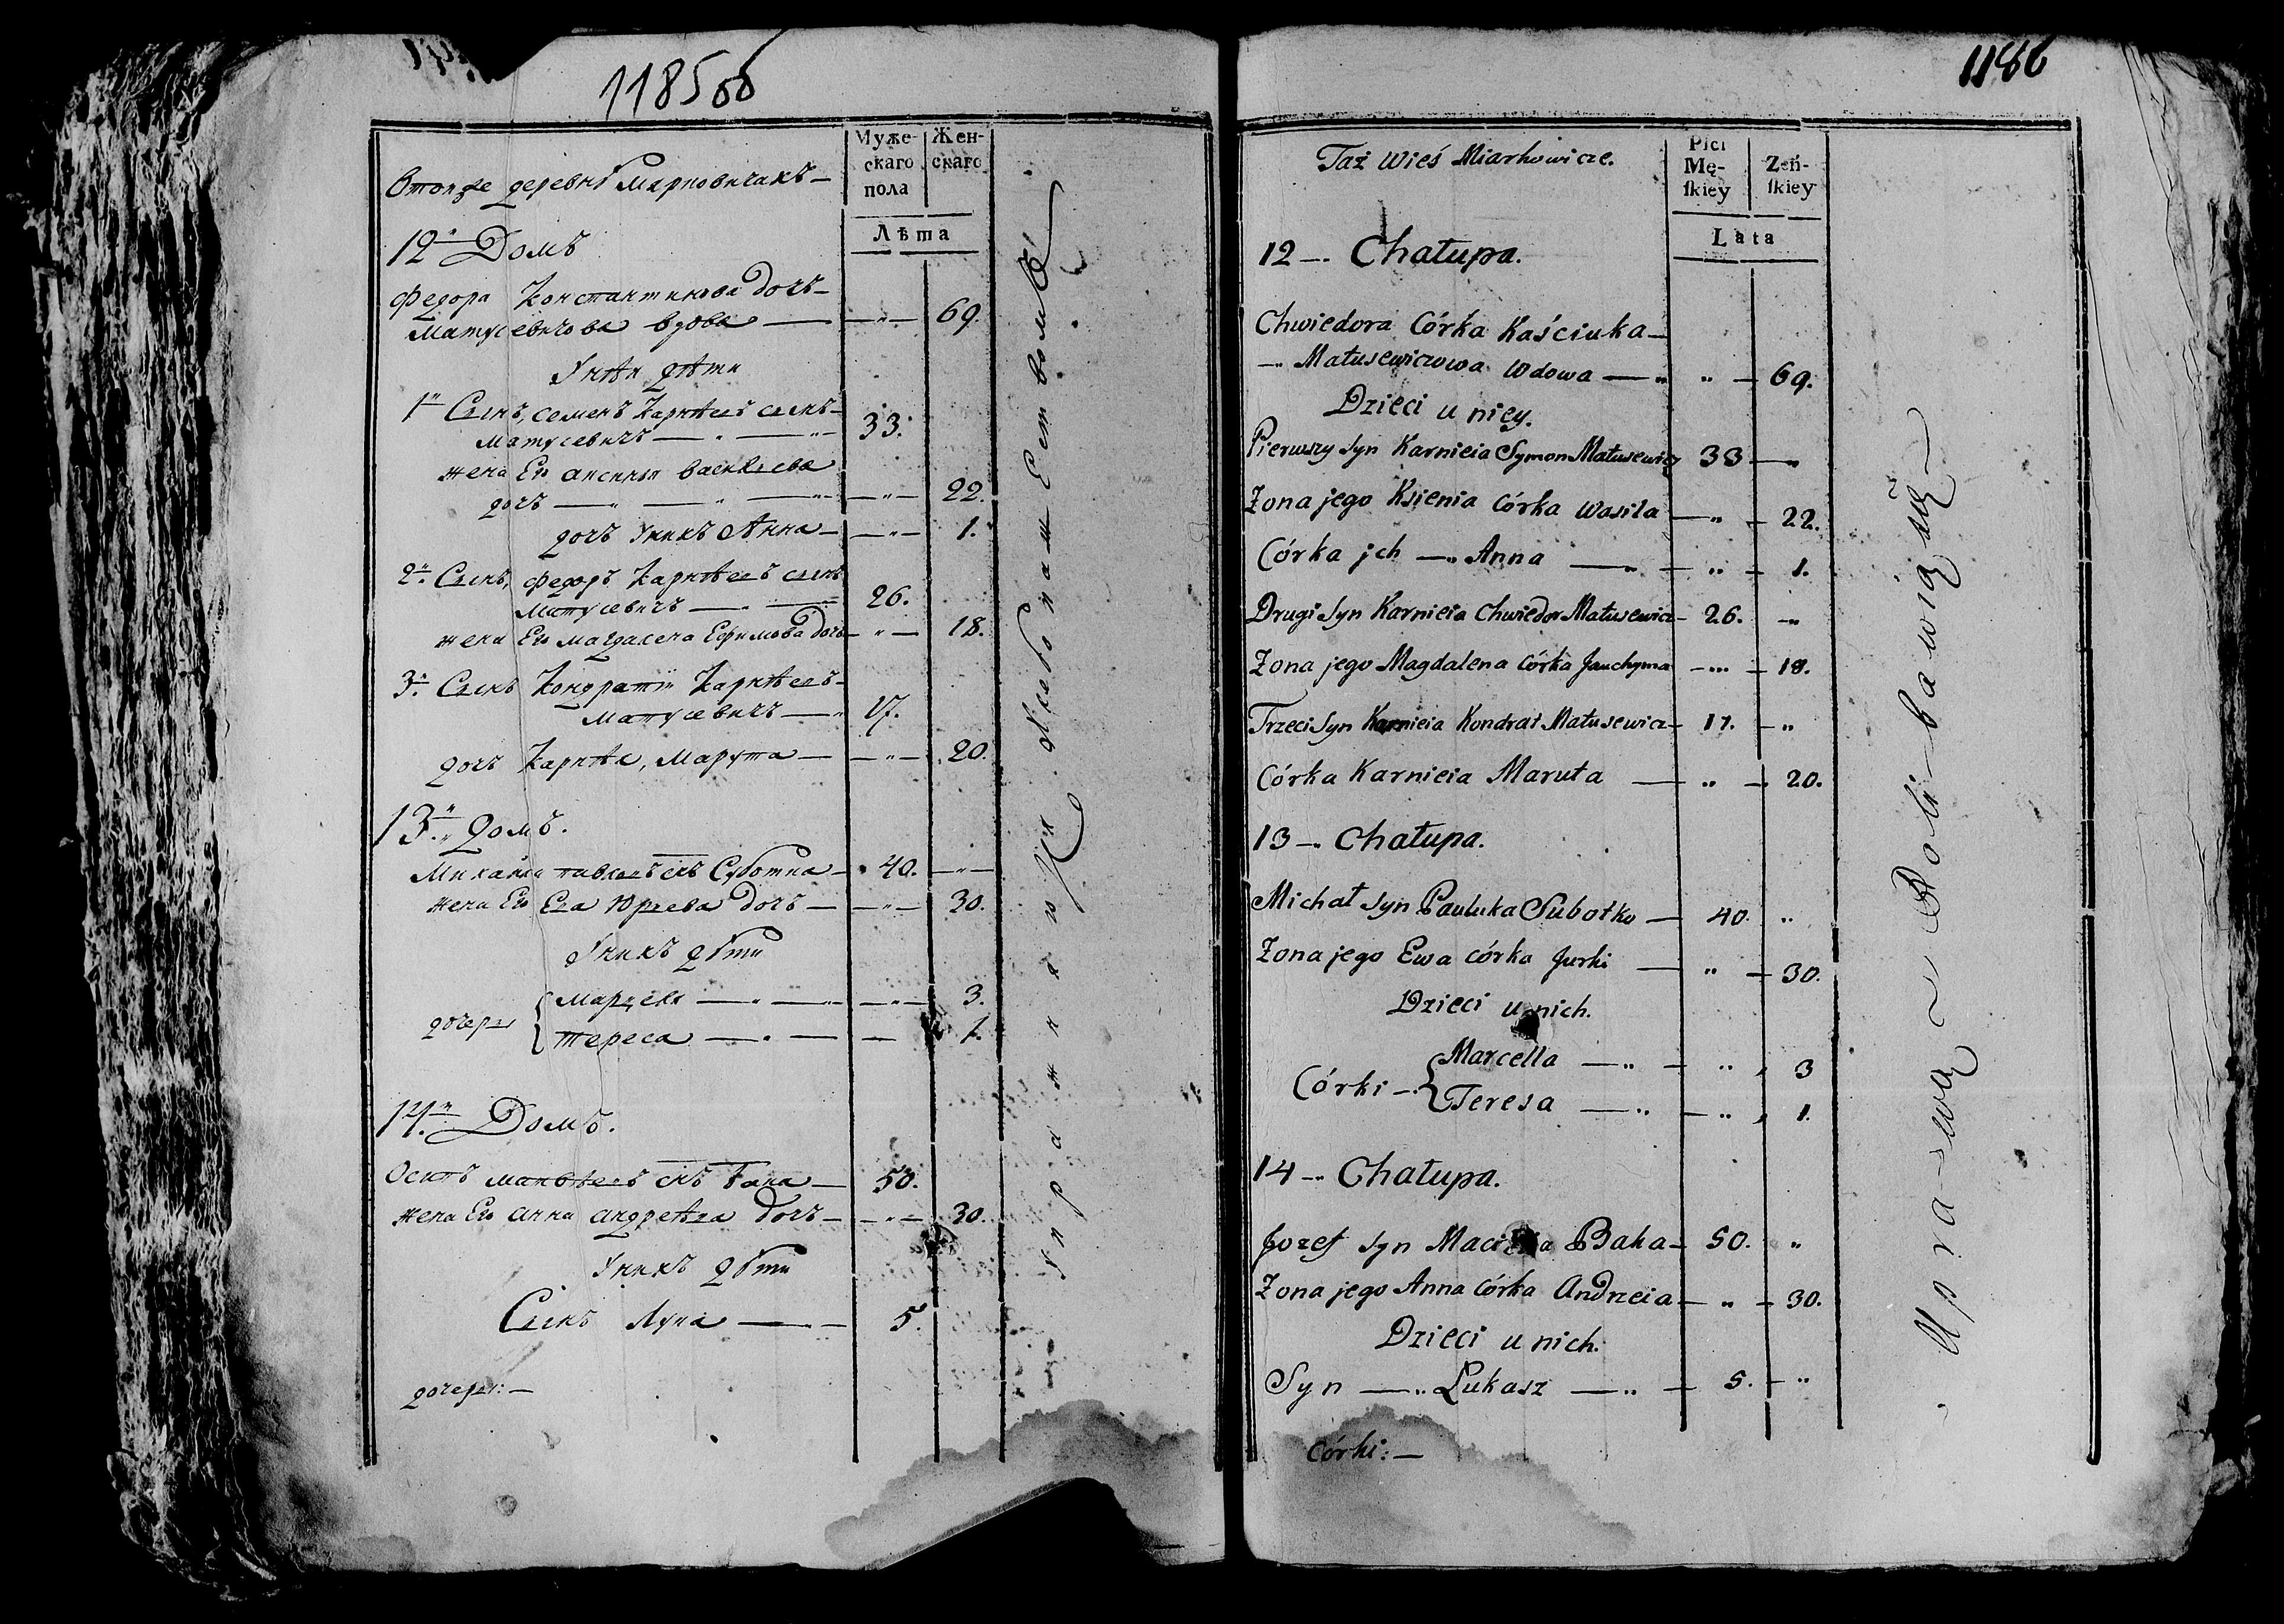 1185об
Муже-
скаго
пола
Жен-
скаго
Лѣта
Втойже деревнѣ Мярковичахъ —
12й Домъ
Федора Константинова дочь —
Матусевичова вдова — 69.
Унѣи дѣти
1й Сынъ, Семенъ Карнѣевъ сынъ —
Матусевичъ — 33.
жена Его аксинья васильева
дочь — 22.
дочь Унихъ Анна — 1.
2й Сынъ, федоръ Карнѣевъ сынъ
Матусевичъ — 26.
жена Его магдалена Ефимова дочь — 18.
3й Сынъ Кондратiи Карнѣевъ —
Матусевичъ — 17.
дочь Карнѣя, Марута — 20.
13й домъ.
Михайла павловъ снъ Суботка — 40.
жена Его Ева Юрьева дочь — 30.
Унихъ дѣти
дочери
Марцеля — 3.
тереса — 1.
14й Домъ.
Осипъ матвѣевъ снъ Бака — 50.
жена Его анна андреѣва дочь — 30.
Унихъ дѣти
Сынъ Лука — 5.
дочери: —
Упражняются Хлебопашествомъ
1186
Taż Wieś Miarkowicze.
Płci
Mę-
skiey
Zeń-
skiey
Lata
12 — Chałupa.
Chwiedora Córka Kaściuka —
— Matusewiczowa Wdowa — " — 69.
Dzieci u niey.
Pierwszy Syn Karnieia Symon Matusewicz 33 — "
Zona jego Ksienia Córka Wasila — " — 22.
Córka jch — Anna — " — 1.
Drugi Syn Karnieia Chwiedor Matusewicz — 26. — "
Zona jego Magdalena Córka Jauchyma — " — 18.
Trzeci Syn Karnieia Kondrat Matusewicz — 17. — "
Córka Karnieia Maruta — " — 20.
13 — Chałupa.
Michał Syn Pauluka Subotko — 40. "
Zona jego Ewa córka Jurki — " — 30.
Dzieci u nich.
Córki —
Marcella — " — 3
Teresa — " — 1.
14 — Chałupa.
Jozef Syn Macieia Baka — 50. "
Zona jego Anna Córka Andrzeia — " — 30.
Dzieci u nich.
Syn — Łukasz — 5. — "
Córki: —
Uprawą Roli bawią się